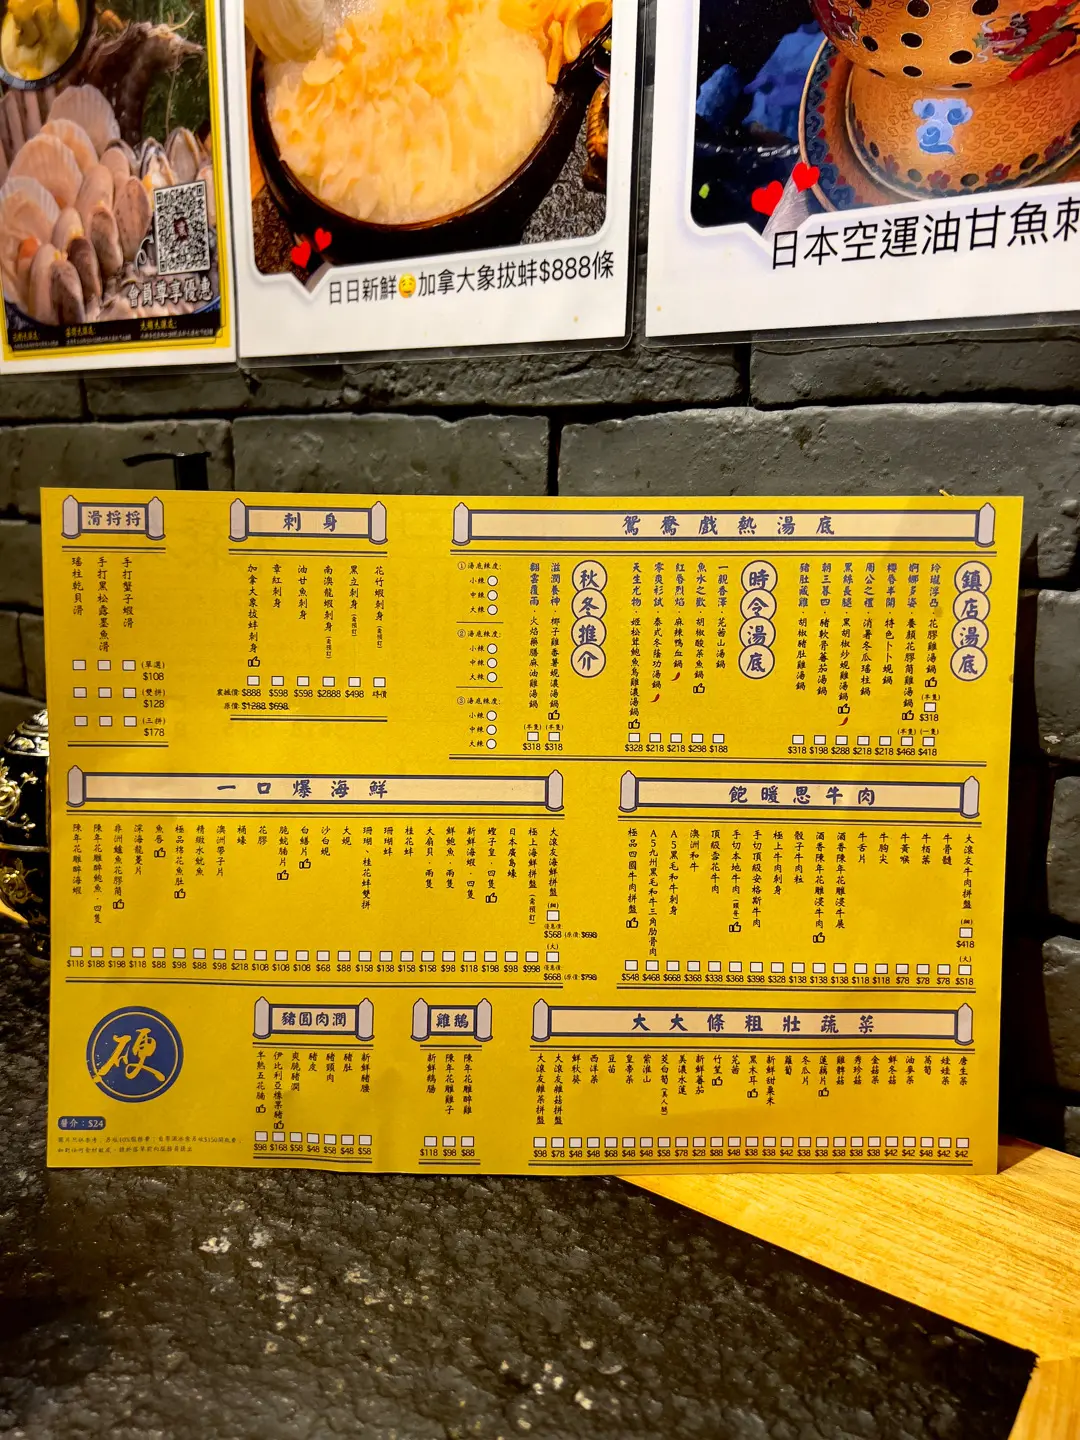 會員尊享優惠
日日新鮮🤤加拿大象拔蚌$888條
日本空運油甘魚刺
鴛鴦戲熱湯底
鎮店湯底
玲瓏浮凸·花膠雞湯鍋
(半隻)
$318
(一隻)
$418
婀娜多姿·養顏花膠筒雞湯鍋
(半隻)
$468
櫻唇半開·特色卜卜蜆鍋
$218
周公之禮·消暑冬瓜瑤柱鍋
$218
黑絲長腿·黑胡椒炒蜆雞湯鍋
$288
朝三暮四·豬軟骨蕃茄湯鍋
$198
豬肚藏雞·胡椒豬肚雞湯鍋
$318
時令湯底
一親香澤·芫茜山湯鍋
$188
魚水之歡·胡椒酸菜魚湯鍋
$298
紅唇烈焰·麻辣鴨血鍋
$218
零爽衫試·泰式冬蔭功湯鍋
$218
天生尤物·姬松茸鮑魚烏雞濃湯鍋
$328
秋冬推介
滋潤養神·椰子雞香薯蜆濃湯鍋
(半隻)
$318
翻雲覆雨·火焰藥膳麻油雞湯鍋
(半隻)
$318
①湯底辣度:
小辣
中辣
大辣
②湯底辣度:
小辣
中辣
大辣
③湯底辣度:
小辣
中辣
大辣
刺身
花竹蝦刺身(需預訂)
時價
黑立刺身(需預訂)
$498
南澳龍蝦刺身(需預訂)
$2888
油甘魚刺身
$598
章紅刺身
$598
原價:$698
加拿大象拔蚌刺身
震撼價:$888
原價:$1288
滑捋捋
手打蟹子蝦滑
手打黑松露墨魚滑
瑤柱乾貝滑
(單選)
$108
(雙拼)
$128
(三拼)
$178
飽暖思牛肉
大滾友牛肉拼盤
(細)
$418
(大)
$518
牛骨髓
$78
牛栢葉
$78
牛黃喉
$78
牛胸尖
$118
牛舌片
$118
酒香陳年花雕浸牛展
$138
酒香陳年花雕浸牛肉
$138
骰子牛肉粒
$138
極上牛肉刺身
$328
手切頂級安格斯牛肉
$398
手切本地牛肉(頸脊)
$338
頂級雪花牛肉
$338
澳洲和牛
$368
A5黑毛和牛刺身
$668
A5九州黑毛和牛三角肋骨肉
$468
極品四國牛肉拼盤
$548
一口爆海鮮
大滾友海鮮拼盤
(細)
優惠價:
$568 (原價:$698)
(大)
優惠價:
$668 (原價:$798)
極上海鮮拼盤(需預訂)
$998
日本廣島蠔
$98
蟶子皇·四隻
$198
新鮮海蝦·四隻
$118
鮮鮑魚·兩隻
$98
大扇貝·兩隻
$158
桂花蚌
$158
珊瑚蚌
$138
珊瑚、桂花蚌雙拼
$158
大蜆
$88
沙白蜆
$68
白鱔片
$108
脆鯇腩片
$108
花膠
$108
桶蠔
$218
澳洲帶子片
$98
精緻水魷魚
$88
極品棉花魚肚
$98
魚唇
$88
深海龍躉片
$118
非洲鱸魚花膠筒
$198
陳年花雕醉鮑魚·四隻
$188
陳年花雕醉海蝦
$118
大大條粗壯蔬菜
唐生菜
$42
娃娃菜
$42
萵筍
$42
油麥菜
$42
鮮冬菇
$42
金菇菜
$38
秀珍菇
$38
雞髀菇
$38
蓮藕片
$38
冬瓜片
$38
蘿蔔
$38
新鮮甜粟米
$38
黑木耳
$38
芫茜
$48
竹笙
$88
新鮮蕃茄
$28
美濃水蓮
$78
茭白筍(美人腿)
$58
紫淮山
$48
皇帝菜
$48
豆苗
$68
西洋菜
$48
鮮秋葵
$48
大滾友雜菇拼盤
$78
大滾友雜菜拼盤
$98
雞鵝
陳年花雕醉雞
$88
陳年花雕雞子
$98
新鮮鵝腸
$118
豬圓肉潤
新鮮豬腰
$58
豬肚
$48
豬頸肉
$58
豬皮
$48
爽脆豬潤
$58
伊比利亞橡果豬
$168
半熟五花腩
$98
硬
醬介:$24